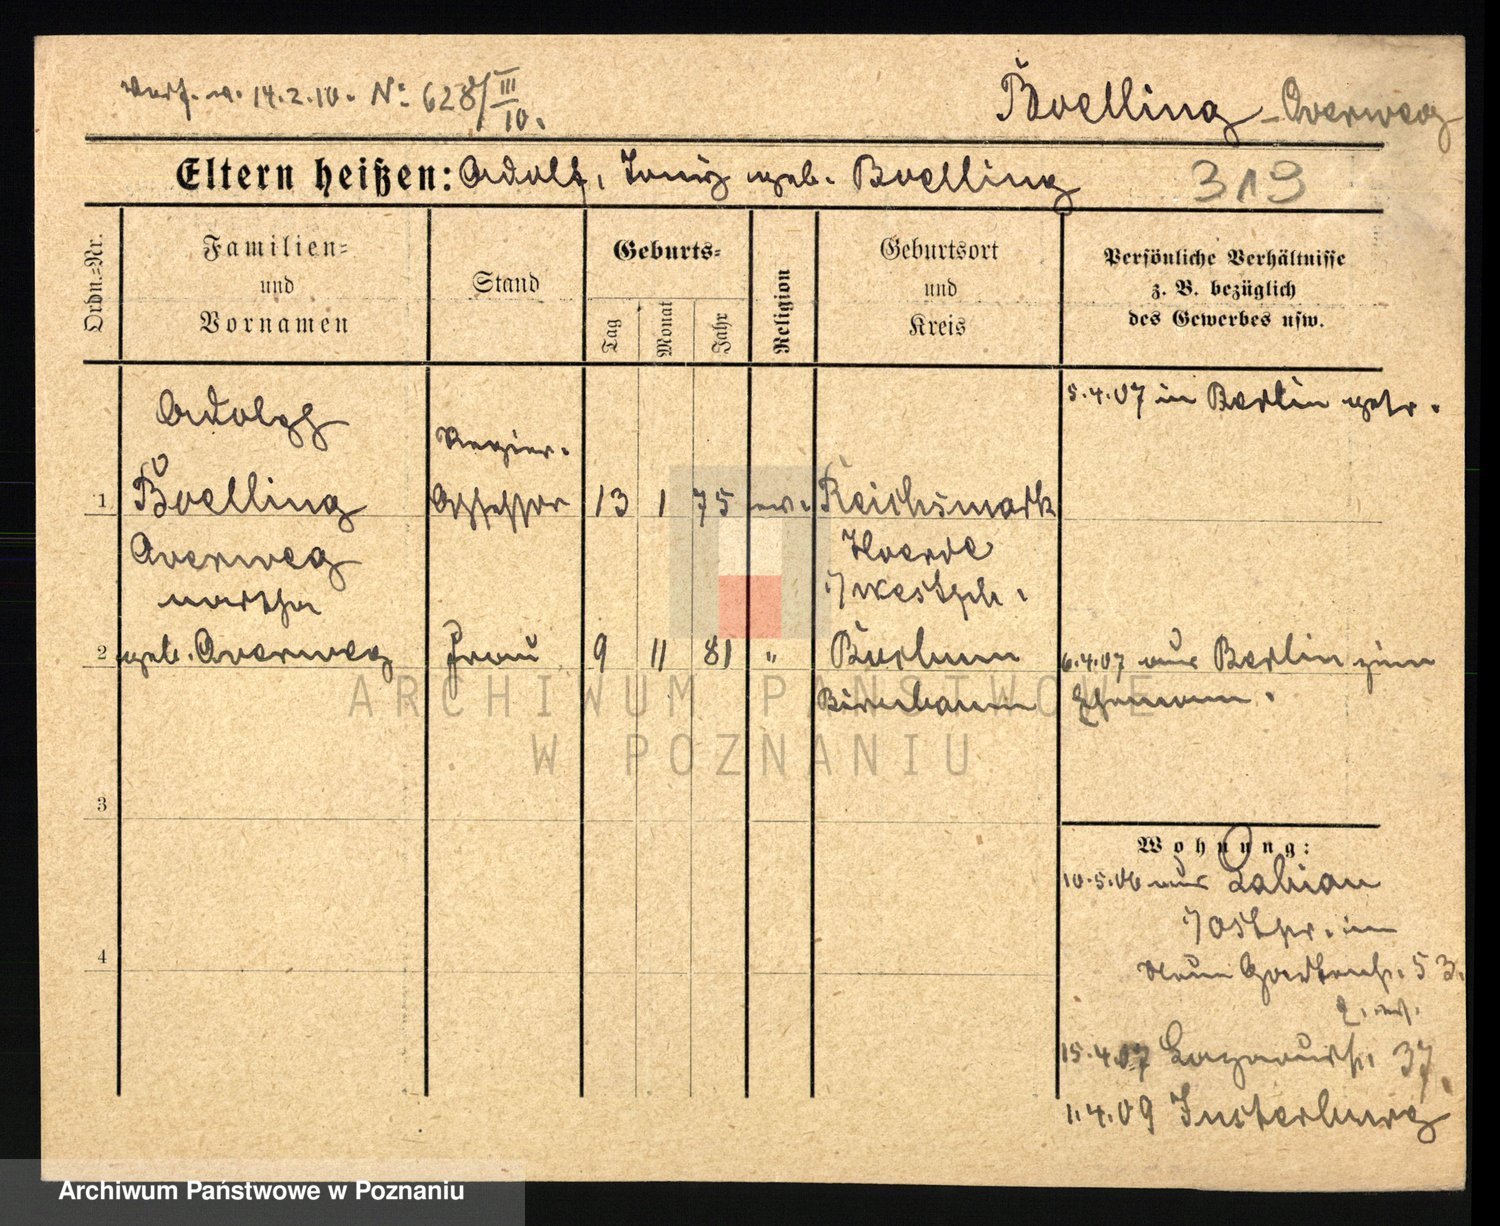 Verf. v. 14.2.10. No. 628/III 10.
Boelling - Overweg
Eltern heißen: Adolf, Louis geb. Boelling
319
Ordn.=Nr.
Familien=
und
Vornamen
Stand
Geburts=
Tag
Monat
Jahr
Religion
Geburtsort
und
Kreis
Persönliche Verhältnisse
z. B. bezüglich
des Gewerbes usw.
5.4.07 in Berlin getr.
Adolf
Regier.
1 Boelling Assessor 13 1 75 ev. Reichsmark
Overweg
Hoerde
Martha
i/Westph.
2 geb. Overweg Frau 9 11 81 " Bochum
6.4.07 aus Berlin zum
Ehemann.
ARCHIWUM PAŃSTWOWE
W POZNANIU
3
Wohnung:
10.5.06 aus Labiau
i/Ostpr. in
Neue Gartenstr. 53.
4
15.4.07 Lazarusstr. 37.
1.4.09 Insterburg
Archiwum Państwowe w Poznaniu